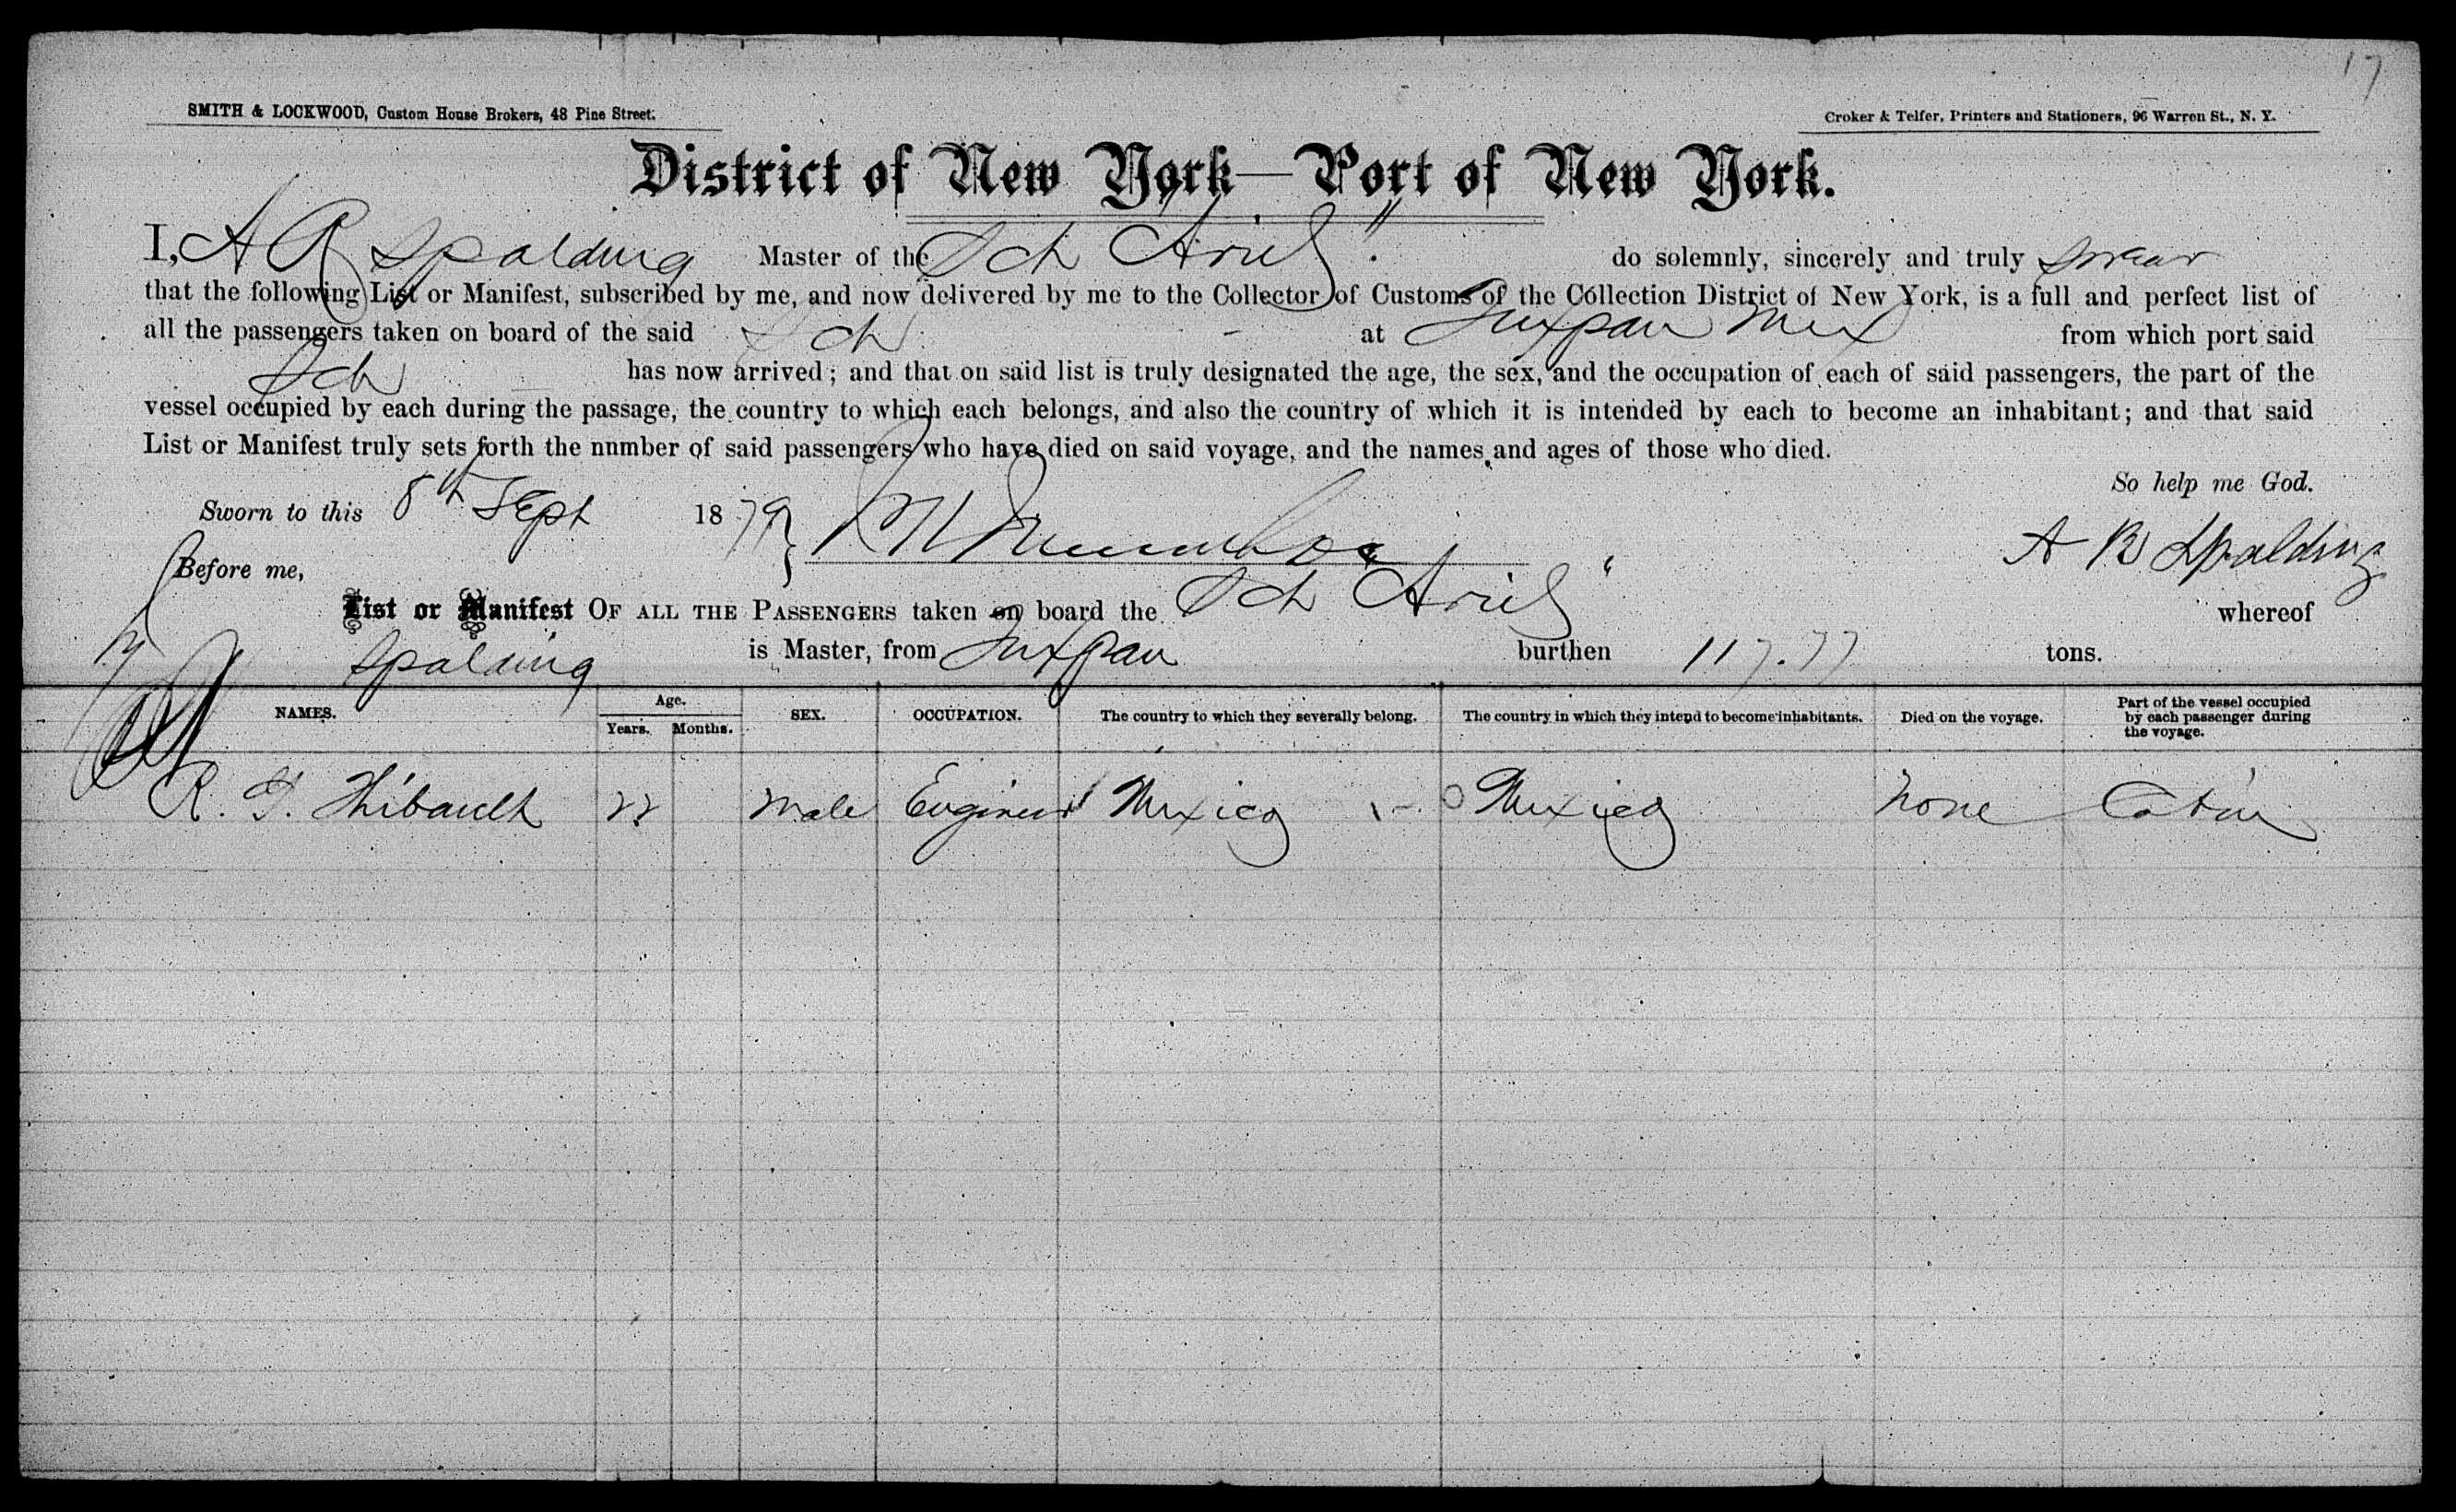 17
SMITH & LOCKWOOD, Custom House Brokers, 48 Pine Street.
Croker & Telfer, Printers and Stationers, 96 Warren St., N. Y.
District of New York—Port of New York.
I, A B Spalding Master of the Sch "Ariel" do solemnly, sincerely and truly swear
that the following List or Manifest, subscribed by me, and now delivered by me to the Collector of Customs of the Collection District of New York, is a full and perfect list of
all the passengers taken on board of the said Sch at Tuxpan Mex from which port said
Sch has now arrived; and that on said list is truly designated the age, the sex, and the occupation of each of said passengers, the part of the
vessel occupied by each during the passage, the country to which each belongs, and also the country of which it is intended by each to become an inhabitant; and that said
List or Manifest truly sets forth the number of said passengers who have died on said voyage, and the names and ages of those who died.
So help me God.
Sworn to this 8th Sept 1879
A B Spalding
Before me,
List or Manifest OF ALL THE PASSENGERS taken on board the Sch "Ariel" whereof
Spalding is Master, from Tuxpan burthen 117.77 tons.
NAMES. Age. Years. Months. SEX. OCCUPATION. The country to which they severally belong. The country in which they intend to become inhabitants. Died on the voyage. Part of the vessel occupied by each passenger during the voyage.
R. T. Thibault 22 Male Engineer Mexico Mexico None Cabin